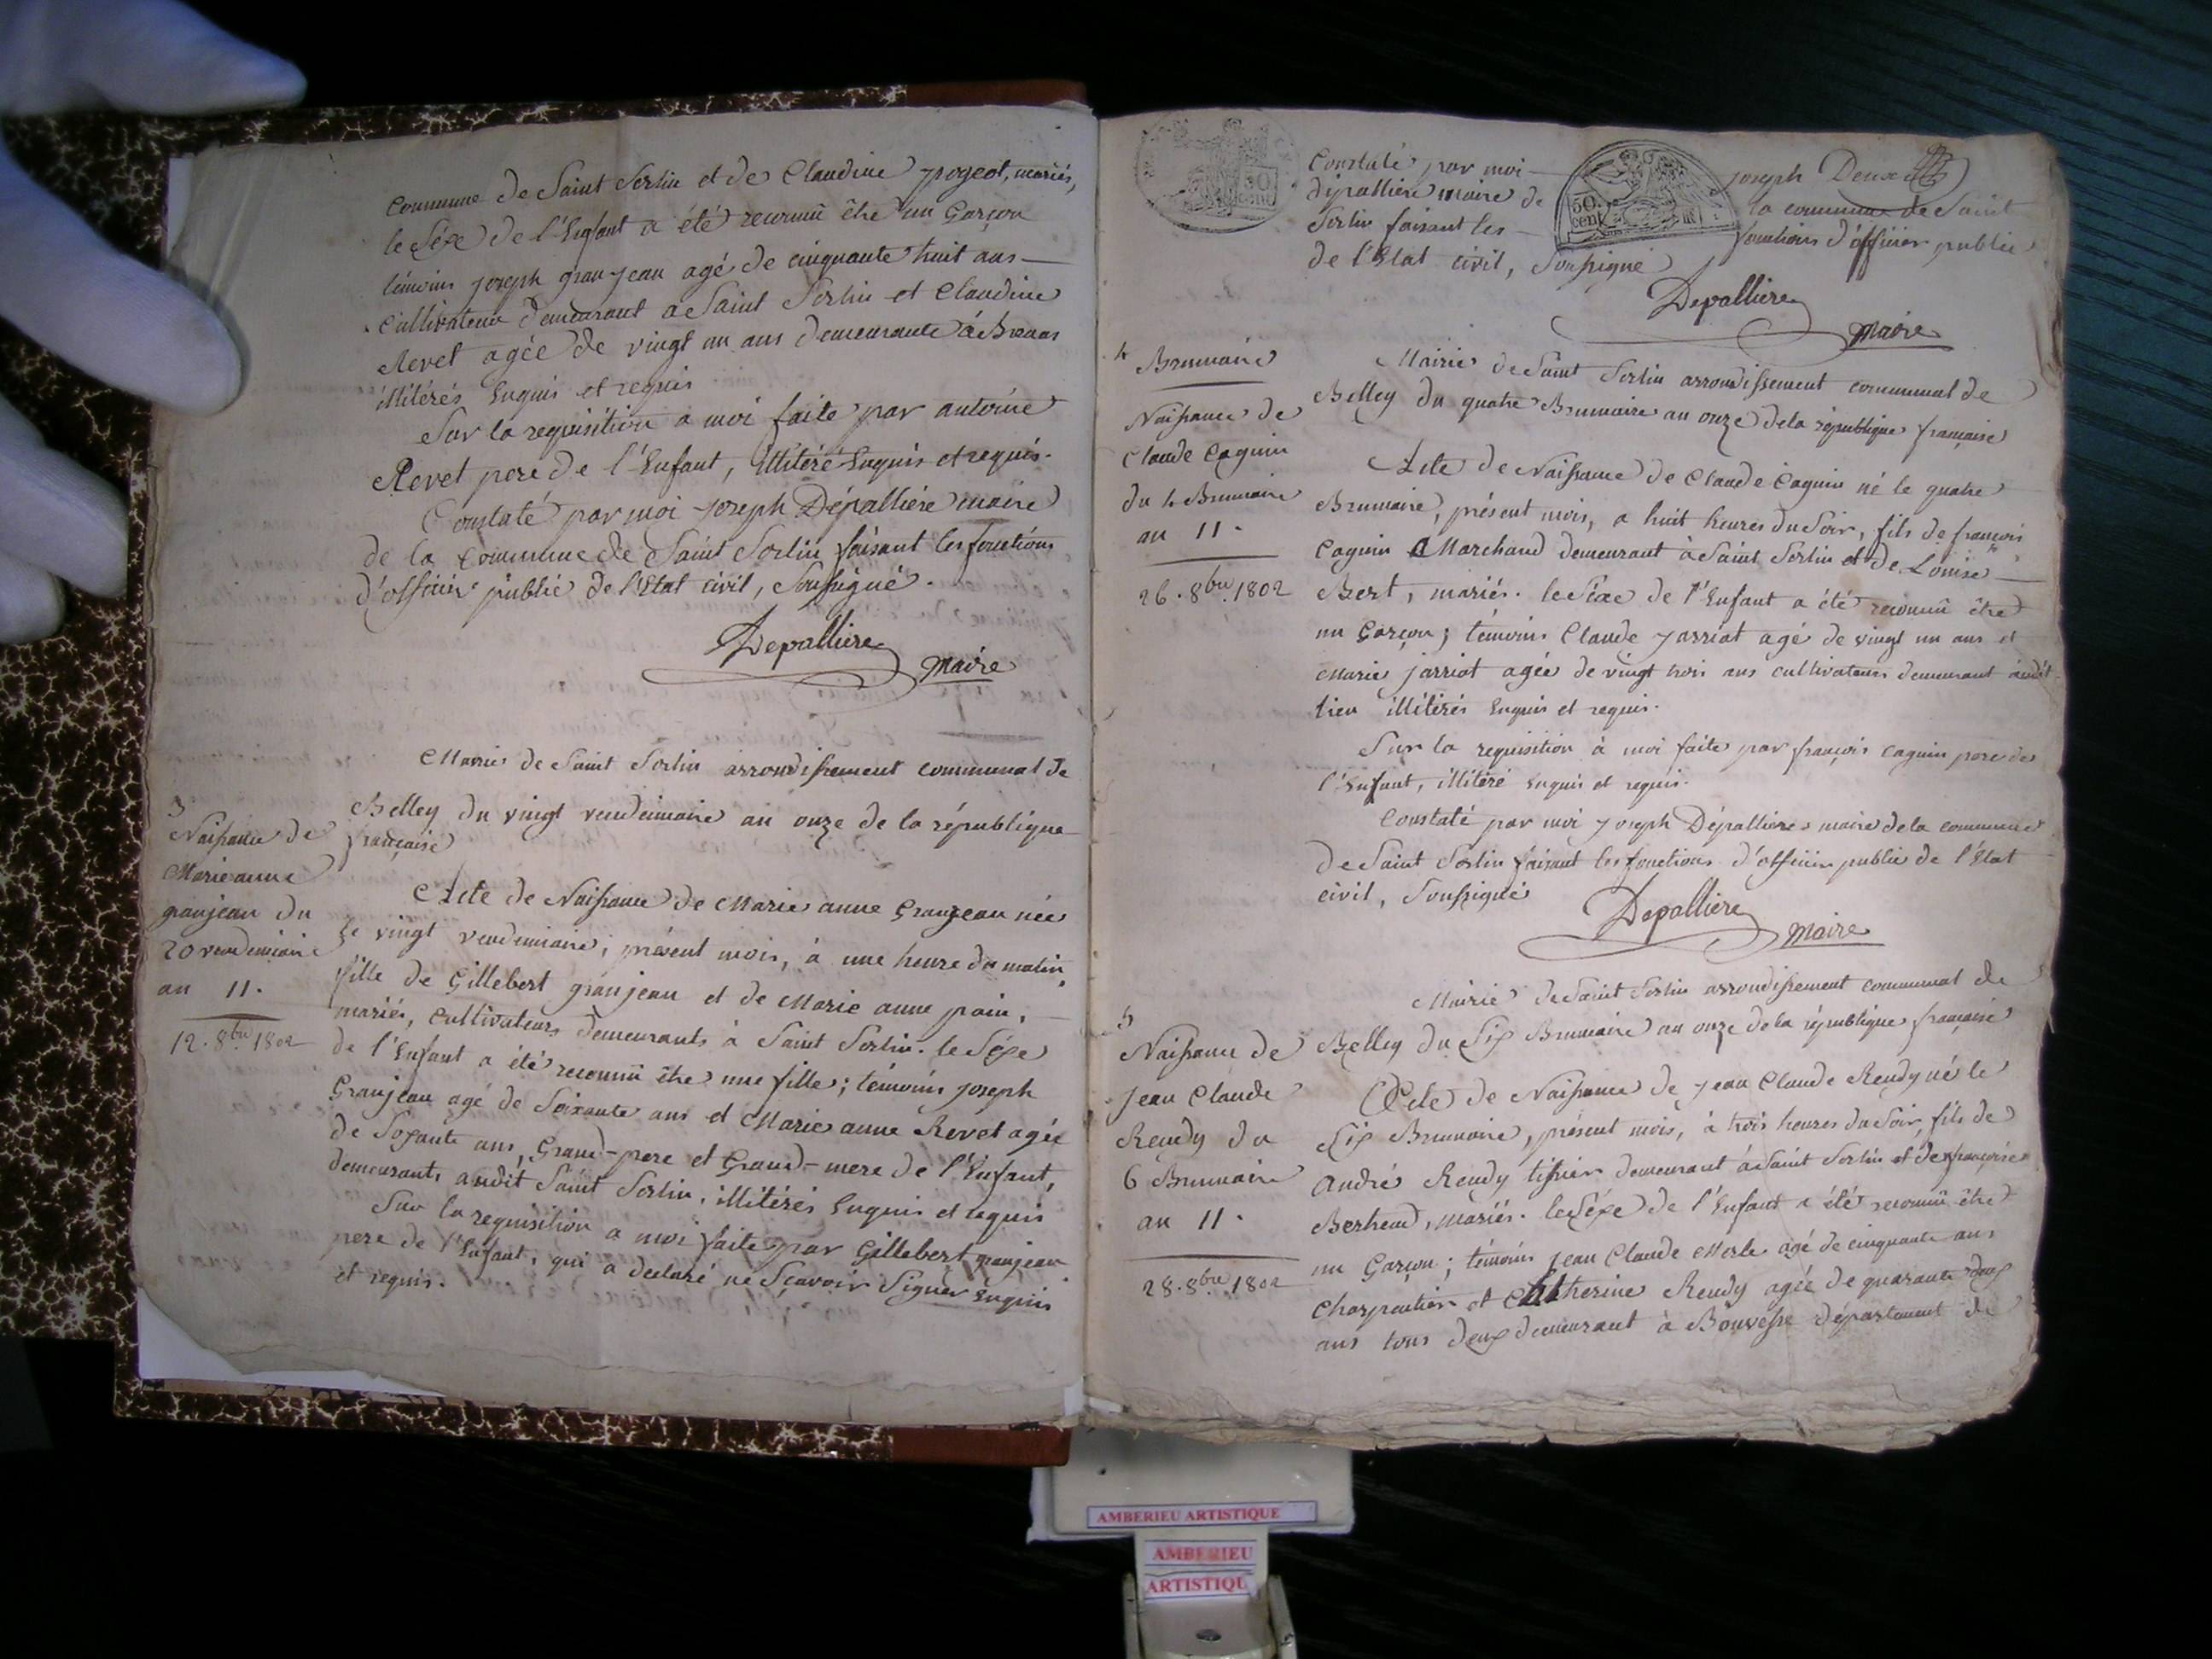 commune de Saint Sorlin et de Claudine pogeot, mariés,
le Séxe de l'Enfant a été reconnû être un Garçon
témoins joseph granjean agé de cinquante huit ans
Cultivateur demeurant a Saint Sorlin et Claudine
Revet agée de vingt un ans demeurante à
illitérés Enquis et requis
Sur la requisition a moi faite par antoine
Revet pere de l'Enfant, illitéré Enquis et requis.
Constaté par moi joseph Dépalliere maire
de la commune de Saint Sorlin faisant les fonctions
d'officier public de l'Etat civil, Soussigné.
Depalliere
Maire
Mairie de Saint Sorlin arrondissement communal de
Belley du vingt vendemiaire an onze de la république
française
3
Naissance de
Marie anne
granjean du
20 vendemiaire
an 11.
12. 8bre 1802
Acte de Naissance de Marie anne Granjean née
le vingt vendemiaire, présent mois, à une heure du matin,
fille de Gillebert granjean et de Marie anne pain,
mariés, cultivateurs demeurants à Saint Sorlin. le Séxe
de l'Enfant a été reconnû être une fille; témoins joseph
Granjean agé de Soixante ans et Marie anne Revet agée
de Soxante ans, Grand-pere et Grand-mere de l'Enfant,
demeurants audit Saint Sorlin, illitérés Enquis et requis
Sur la requisition a moi faite par Gillebert granjean
pere de l'Enfant, qui a declaré ne Sçavoir Signer Enquis
et requis.
50 cent
Constaté par moi joseph
dépalliere maire de la commune de Saint
Sorlin faisant les fonctions d'officier public
de l'Etat civil, Soussigné
50. cent
Depalliere
Maire
4 Brumaire
Naissance de
Claude Caguin
du 4 Brumaire
an 11.
26. 8bre 1802
Mairie de Saint Sorlin arrondissement communal de
Belley du quatre Brumaire an onze de la république française
Acte de Naissance de Claude Caguin né le quatre
Brumaire, présent mois, a huit heures du Soir, fils de françois
Caguin Marchand demeurant à Saint Sorlin et de Louise
Bert, mariés. le Séxe de l'Enfant a été reconnû être
un Garçon; témoins Claude jarriot agé de vingt un ans et
Marie jarriot agée de vingt trois ans cultivateurs demeurant audit
lieu illitérés Enquis et requis.
Sur la requisition à moi faite par françois Caguin pere de
l'Enfant, illitéré Enquis et requis.
Constaté par moi joseph Dépalliere maire de la commune
de Saint Sorlin faisant les fonctions d'officier public de l'Etat
civil, Soussigné
Depalliere
Maire
5
Naissance de
Jean Claude
Reudy du
6 Brumaire
an 11.
28. 8bre 1802
Mairie de Saint Sorlin arrondissement communal de
Belley du Six Brumaire an onze de la république française
Acte de Naissance de jean Claude Reudy né le
Six Brumaire, présent mois, à trois heures du Soir, fils de
André Reudy tissier demeurant à Saint Sorlin et de françoise
Bertrand, mariés. le Séxe de l'Enfant a été reconnû être
un Garçon; témoins jean Claude Merle agé de cinquante ans
Charpentier et Catherine Reudy agée de quarante deux
ans tous deux demeurant à Bouvesse département de
AMBERIEU ARTISTIQUE
AMBERIEU
ARTISTIQU